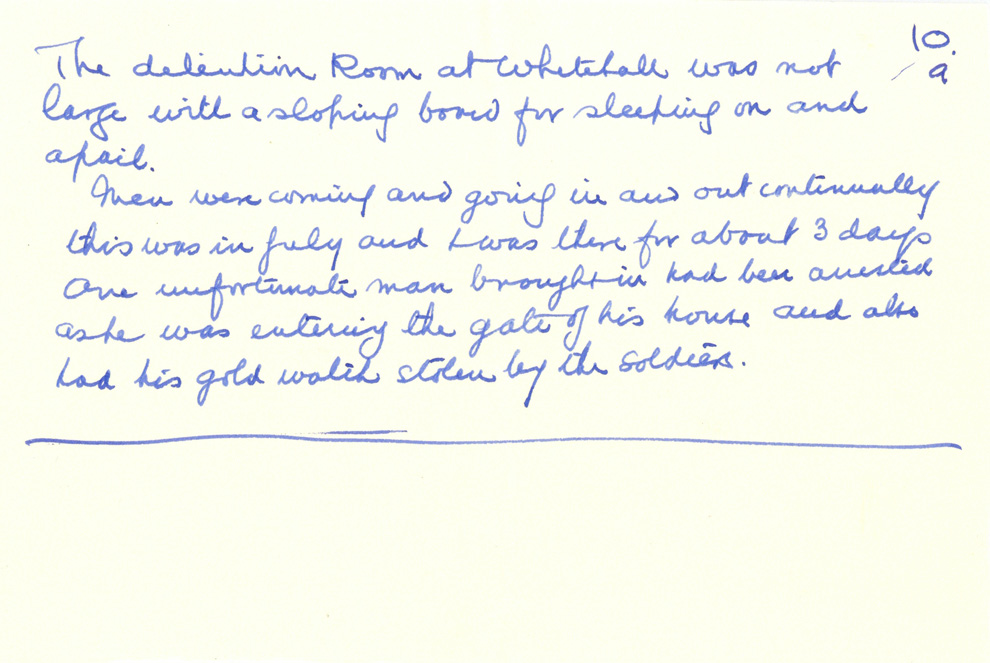 10.
a
The detention Room at Whitehall was not
large with a sloping board for sleeping on and
a pail.
Men were coming and going in and out continually
this was in July and I was there for about 3 days
One unfortunate man brought in had been arrested
as he was entering the gate of his house and also
had his gold watch stolen by the soldiers.